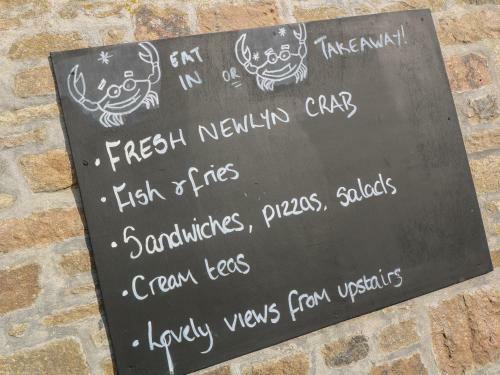 EAT IN OR TAKEAWAY!
• FRESH NEWLYN CRAB
• Fish & fries
• Sandwiches, pizzas, salads
• Cream teas
• Lovely views from upstairs